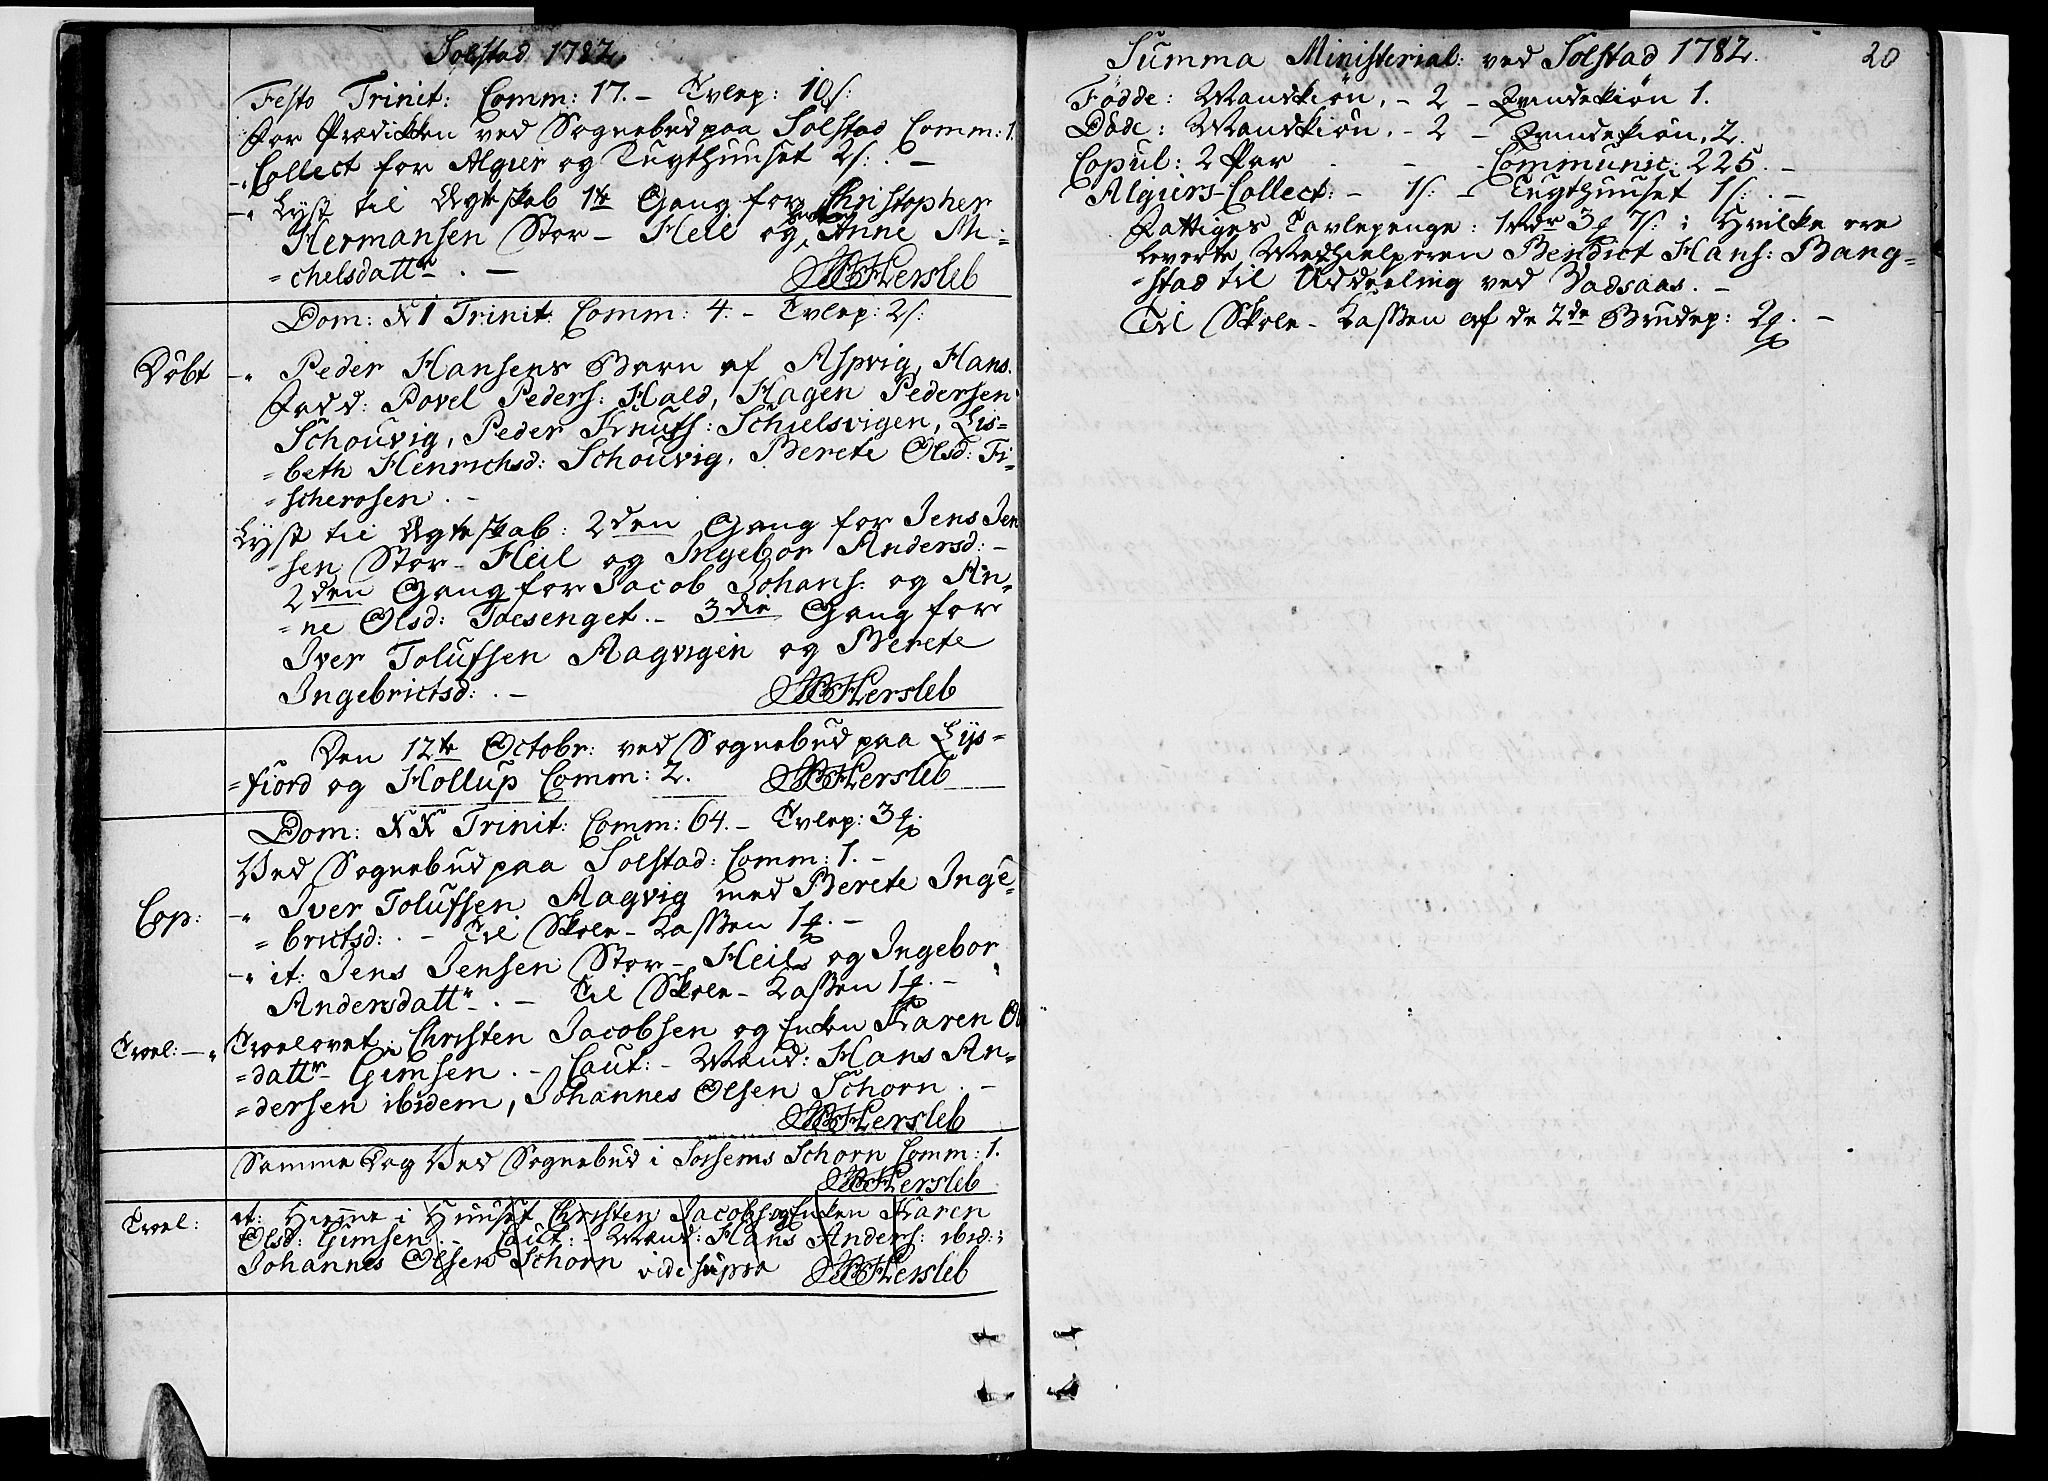 Solstad 1782.
Festo Trinit: Comm: 17. – Tvlep: 10 s:
For Prædikken ved Sognebud paa Solstad Comm: 1.
Collect for Algier og Tugthuuset 2 s: . –
Lyst til Ægteskab 1te Gang for Christopher
Hermansen Stor-Heil og Anne Mi=
=chelsdattr . – Hersleb
Dom: XI Trinit: Comm: 4. – Tvlep: 2 s:
Döbt – Peder Hansens Barn af Aspvig, Hans.
Fadd: Povel Peders: Hald, Hagen Pedersen
Schouvig, Peder Knufs: Schielsvigen, Lis=
=beth Henrichsd: Schouvig, Berete Olsd: Fi=
=scherosen . –
Lyst til Ægteskab: 2den Gang for Jens Jen
=sen Stor-Heil og Ingebor Andersd: –
2den Gang for Jacob Johans: og An=
=ne Olsd: . – 3die Gang for
Iver Tolufsen Aagvigen og Berete
Ingebrictsd: . – Hersleb
Den 12te Octobr: ved Sognebud paa Lys=
=fiord og Hollup Comm: 2. Hersleb
Dom: XX Trinit: Comm: 64. – Tvlep: 3
Ved Sognebud paa Solstad: Comm: 1. –
Cop: – Iver Tolufsen Aagvig med Berete Inge=
=brictsd: . – Til Skole-Kassen 1 . –
– it: Jens Jensen Stor-Heil og Ingebor
Andersdattr . – Til Skole-Kassen 1 . –
Troel: – Troelovet: Christen Jacobsen og Enken Karen Ols
=dattr Gimsen . – Caut: – Mænd: Hans An=
=dersen ibidem, Johannes Olsen Schorn . –
Hersleb
Samme Dag Ved Sognebud i Schorn Comm: 1.
Hersleb
Troel: it: Hieme i Huuset Christen Jacobs: og Enken Karen
Olsd: Gimsen . – Caut: – Mænd: Hans Anders: ibid:;
Johannes Olsen Schorn vide supra Hersleb
Summa Ministerial: ved Solstad 1782. 20
Födde: Mandkiön, – 2 – Qvindekiön 1.
Döde: Mandkiön, – 2 – Qvindekiön, 2.
Copul: 2 Par – – – Communic: 225. –
Algiers-Collect: – 1 s: – Tugthuuset 1 s: . –
Fattiges Tavlepenge: 1 Rdr 3 7 s: ; Hvilke ere
leverte Medhielperen Bendict Hans: Bang=
=stad til Uddeeling ved Vadsaas. –
Til Skole-Kassen af de 2de Brudep: 2 . –